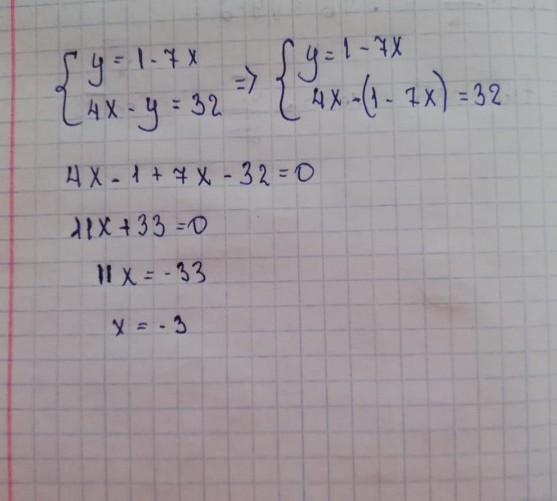 { y = 1 - 7x => { y = 1 - 7x
{ 4x - y = 32 { 4x - (1 - 7x) = 32
4x - 1 + 7x - 32 = 0
11x + 33 = 0
11x = -33
x = -3